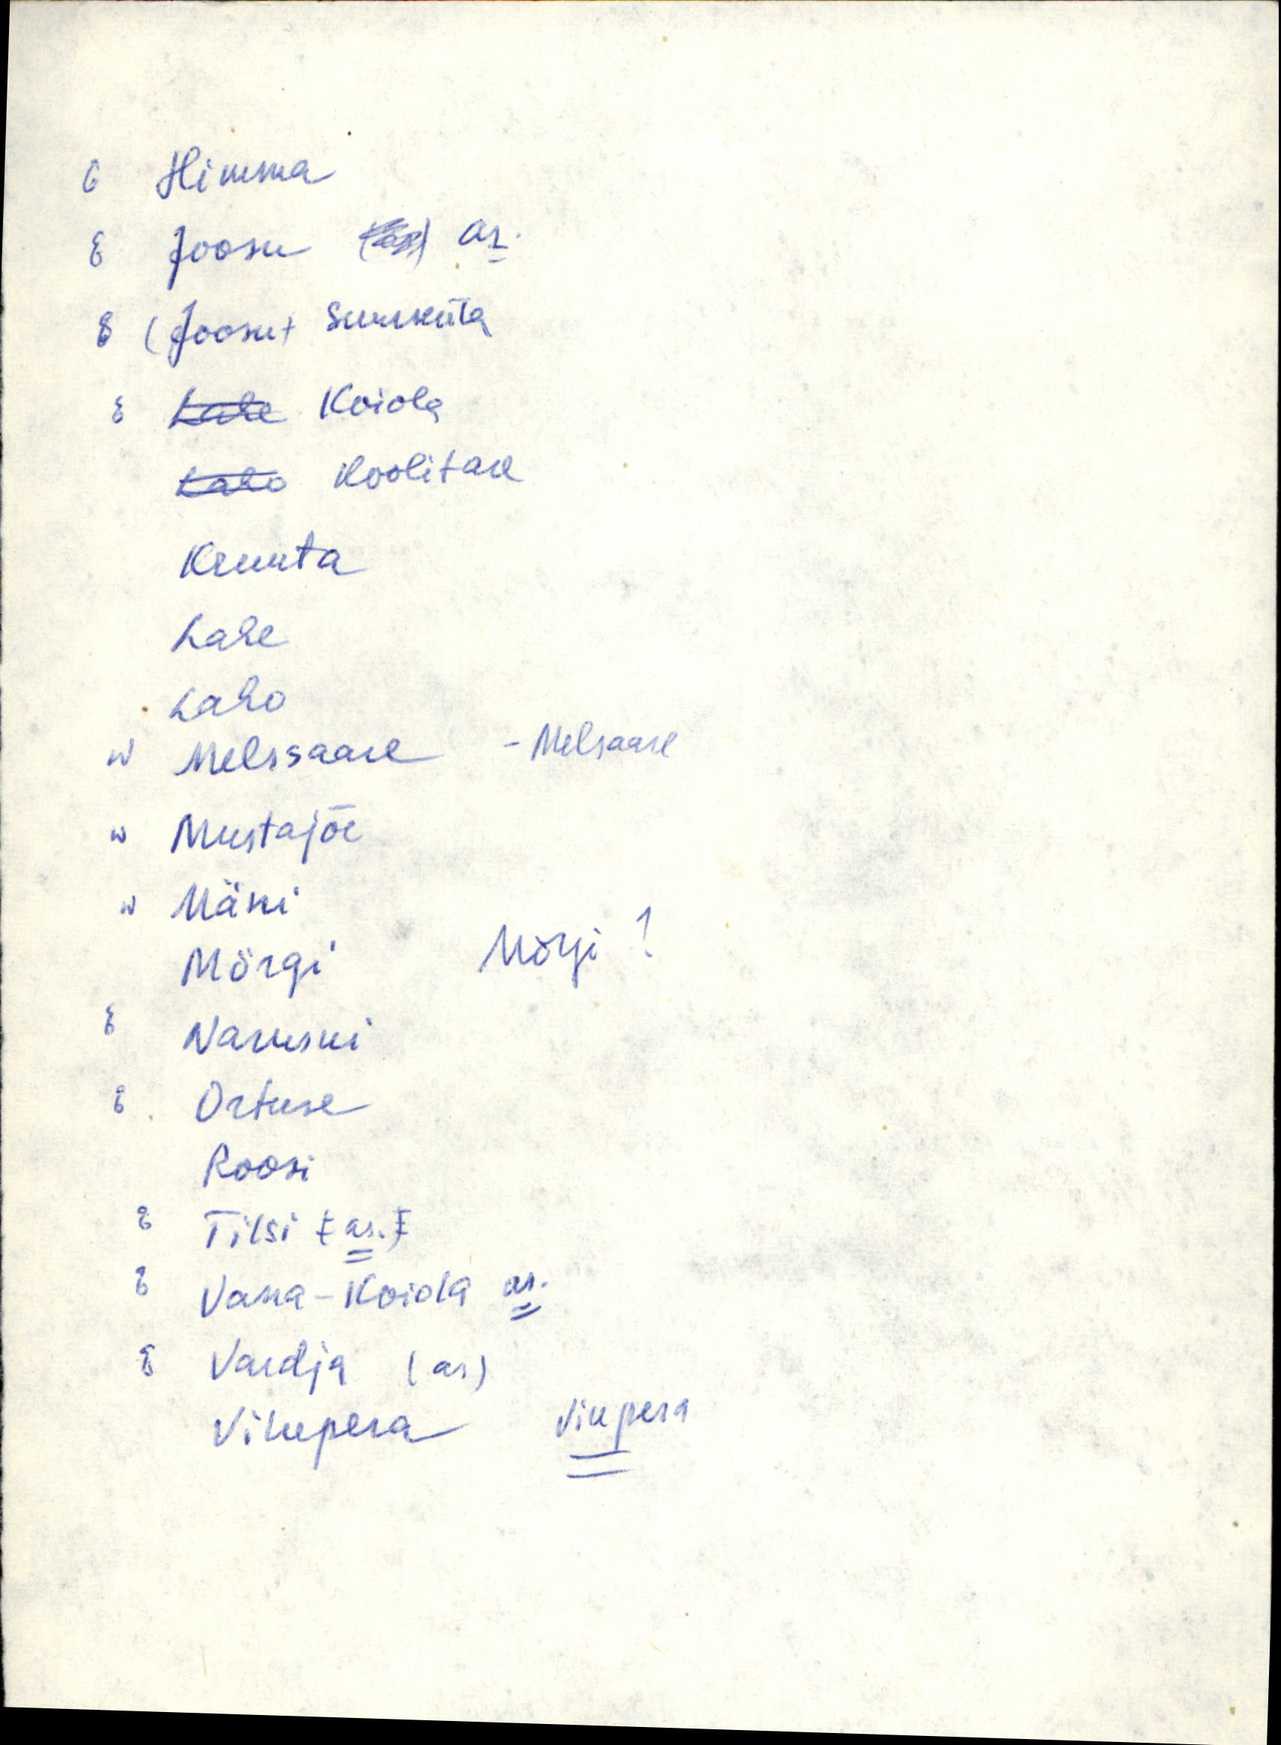 Himma
Joosu as.
(Joosu) Suurküla
Lahe Koiola
Laho Koolitare
Kruuta
Lahe
Laho
w Melssaare - Melsaare
w Mustajõe
w Mäki
Mõrgi Mõrgi ?
Naruski
Ortuse
Roosi
Tilsi (as.)
Vana-Koiola as.
Vardja (as)
Vihupera Viupera